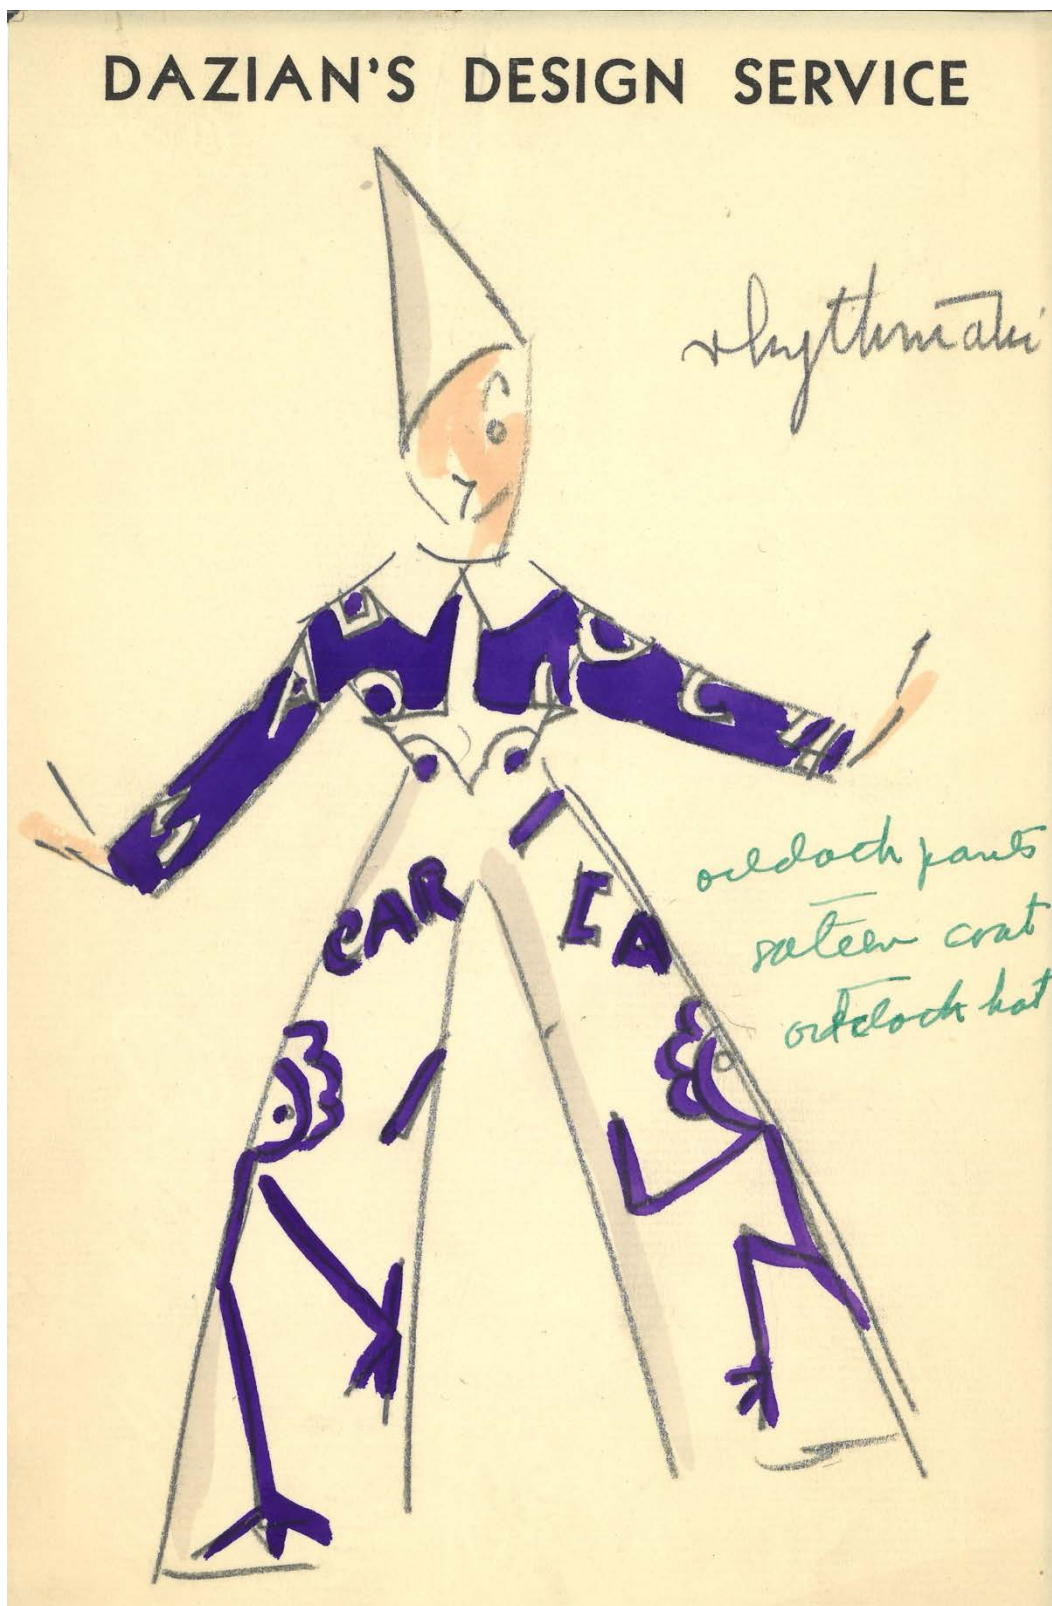 DAZIAN'S DESIGN SERVICE
rhythmatic
I
CAR
CA
oilcloth pants
sateen coat
oilcloth hat